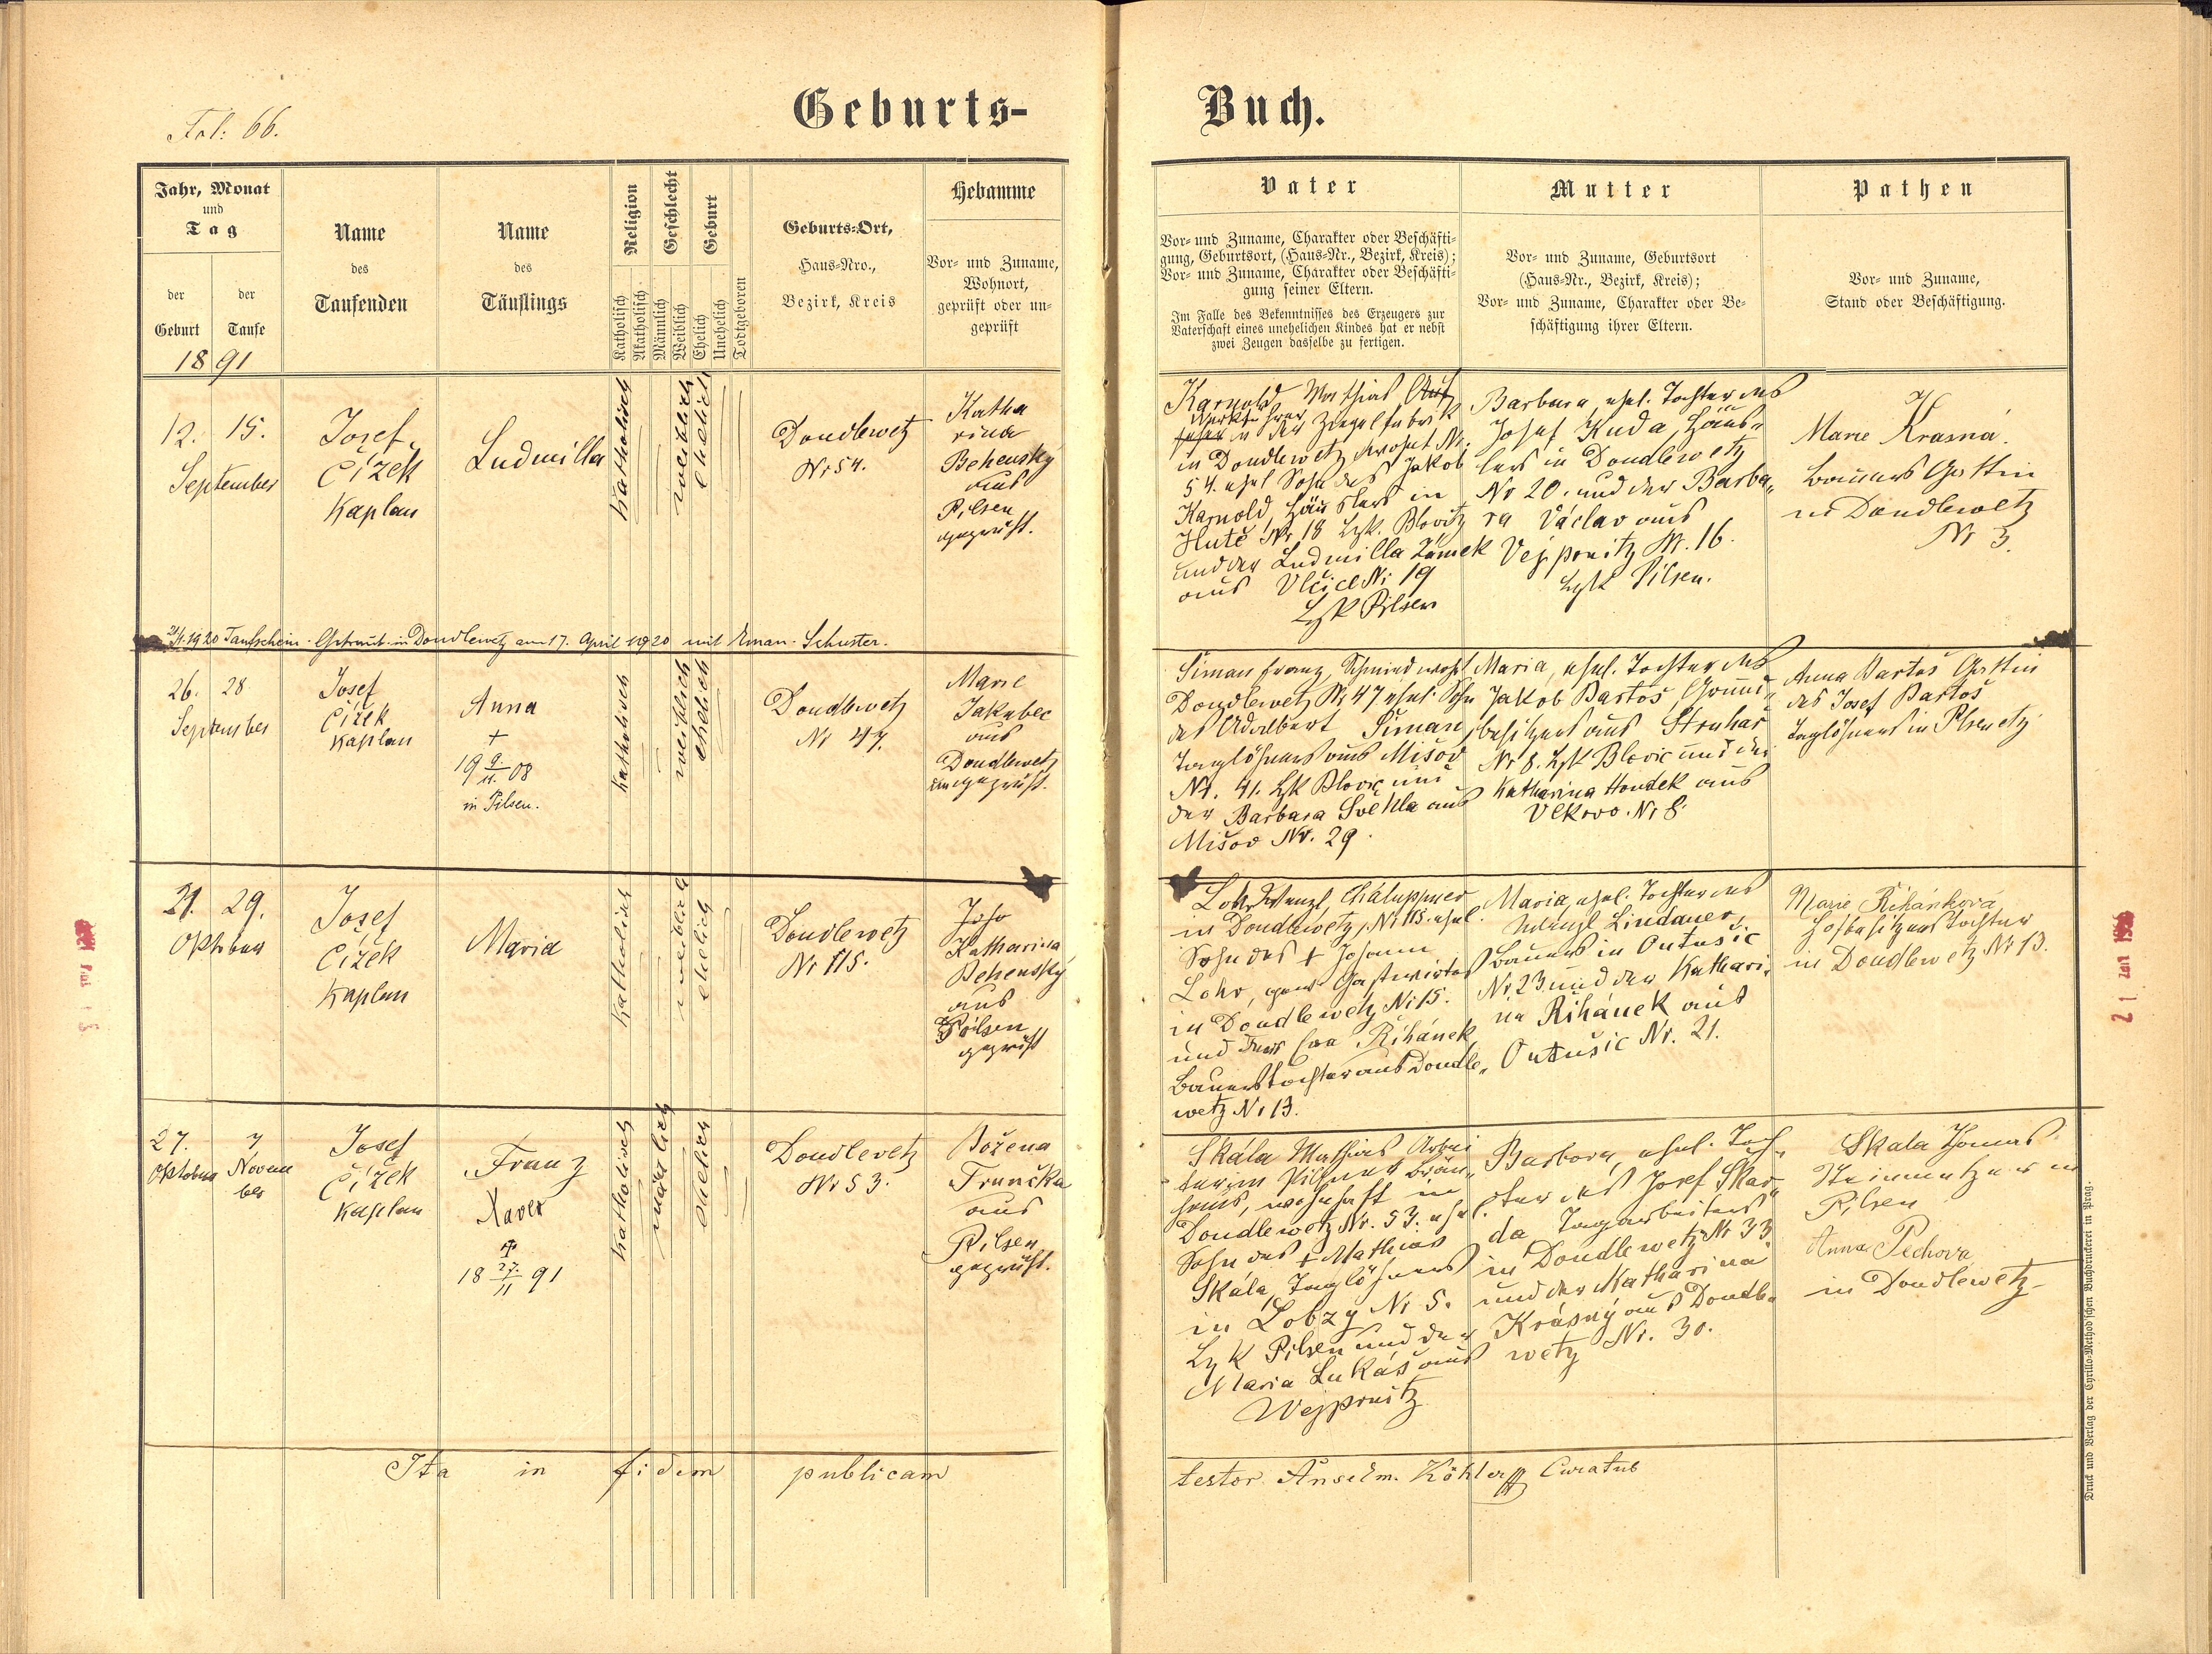 Fol: 66.
Geburts-
Buch.
Jahr, Monat
und
Tag
der
Geburt
der
Taufe
1891
Name
des
Taufenden
Name
des
Täuflings
Religion
Katholisch
Akatholisch
Geschlecht
Männlich
Weiblich
Geburt
Ehelich
Unehelich
Todtgeboren
Geburts-Ort,
Haus-Nro.,
Bezirk, Kreis
Hebamme
Vor- und Zuname,
Wohnort,
geprüft oder un-
geprüft
Vater
Vor- und Zuname, Charakter oder Beschäfti-
gung, Geburtsort, (Haus-Nr., Bezirk, Kreis);
Vor- und Zuname, Charakter oder Beschäfti-
gung seiner Eltern.
Im Falle des Bekenntnisses des Erzeugers zur
Vaterschaft eines unehelichen Kindes hat er nebst
zwei Zeugen dasselbe zu fertigen.
Mutter
Vor- und Zuname, Geburtsort
(Haus-Nr., Bezirk, Kreis);
Vor- und Zuname, Charakter oder Be-
schäftigung ihrer Eltern.
Pathen
Vor- und Zuname,
Stand oder Beschäftigung.
12. 15.
September
Josef
Čížek
Kaplan
Ludmilla
Katholisch
weiblich
ehelich
Doudlewetz
Nr 54.
Katha
rina
Behensky
aus
Pilsen
geprüft.
Karnold Mathias
in der Ziegelfabrik
in Doudlewetz wohnt Nr.
54. ehel Sohn des Jakob
Karnold, Häuslers in
Hutě Nr 18 Bzk. Blowitz
und der Ludmilla Zámek
aus Vlčic Nr 19
Bzk Pilsen
Barbara ehel. Tochter des
Josef Kuda, Häus„
lers in Doudlewetz
Nr 20. und der Barba„
ra Václav aus
Vejprnitz Nr. 16.
Bzk Pilsen.
Marie Krásná.
Bauers Gattin
in Doudlewetz
Nr 3.
1920 Taufschein. Getraut in Doudlewetz am 17. April 1920 mit Eman. Schuster.
26. 28
September
Josef
Čížek
Kaplan
Anna
+
19 9/11 08
in Pilsen.
Katholisch
weiblich
ehelich
Doudlewetz
Nr 47.
Marie
Jakubec
aus
Doudlewetz
ungeprüft.
Šiman Franz, Schmied wohnt
Doudlewetz Nr 47 ehel. Sohn
des Adalbert Šiman,
Taglöhners aus Mišov
Nr. 41. Bzk Blovic und
der Barbara Svehla aus
Mišov Nr. 29.
Maria, ehel. Tochter des
Jakob Bartoš Grund„
besitzers aus Struhař
Nr 8. Bzk Blovic und der
Katharina Houdek aus
Vlkovo. Nr 8.
Anna Bartoš Gattin
des Josef Bartoš
Taglöhners in Pilsenetz
21. 29.
Oktober
Josef
Čížek
Kaplan
Maria
Katholisch
weiblich
ehelich
Doudlewetz
Nr 115.
Katharina
Behensky
aus
Pilsen
geprüft
Lohr Wenzl, Chaluppner
in Doudlewetz, Nr 115. ehel.
Sohn des + Johann
Lohr, gew. Gastwirtes
in Doudlewetz Nr 15.
und Eva Řihánek
Bauerstochter aus Doudle„
wetz Nr 13.
Maria, ehel. Tochter des
Wenzl Lindauer,
Bauers in Outušic
Nr. 23 und der Kathari„
na Řihánek aus
Outušic Nr. 21.
Marie Řihánková
Hofbesitzers Tochter
in Doudlewetz Nr 13.
27.
Oktober
7
Novem
ber
Josef
Čížek
Kaplan
Franz
Xaver
+
18 27./11 91
Katholisch
männlich
ehelich
Doudlevetz
Nr 53.
Božena
Trunčka
aus
Pilsen
geprüft.
Skála Mathias Arbei
ter im Pilsner Bräu„
haus, wohnhaft in
Doudlewetz Nr. 53. ehel.
Sohn des + Mathias
Skála, Taglöhners
in Lobzy Nr 5.
Bzk Pilsen und der
Maria Lukáš aus
Wejprnitz
Barbora, ehel. Toch„
ter des Josef Skar„
da Tagarbeiters
in Doudlewetz Nr 33
und der Katharina
Krásný aus Doudle„
wetz Nr. 30.
Skala Thomas
Steinmetzer in
Pilsen
Anna Pechova
in Doudlewetz
Ita in fidem publicam
testor Anselm. Köhler Curatus
Druck und Verlag der Cyrillo-Method'schen Buchdruckerei in Prag.